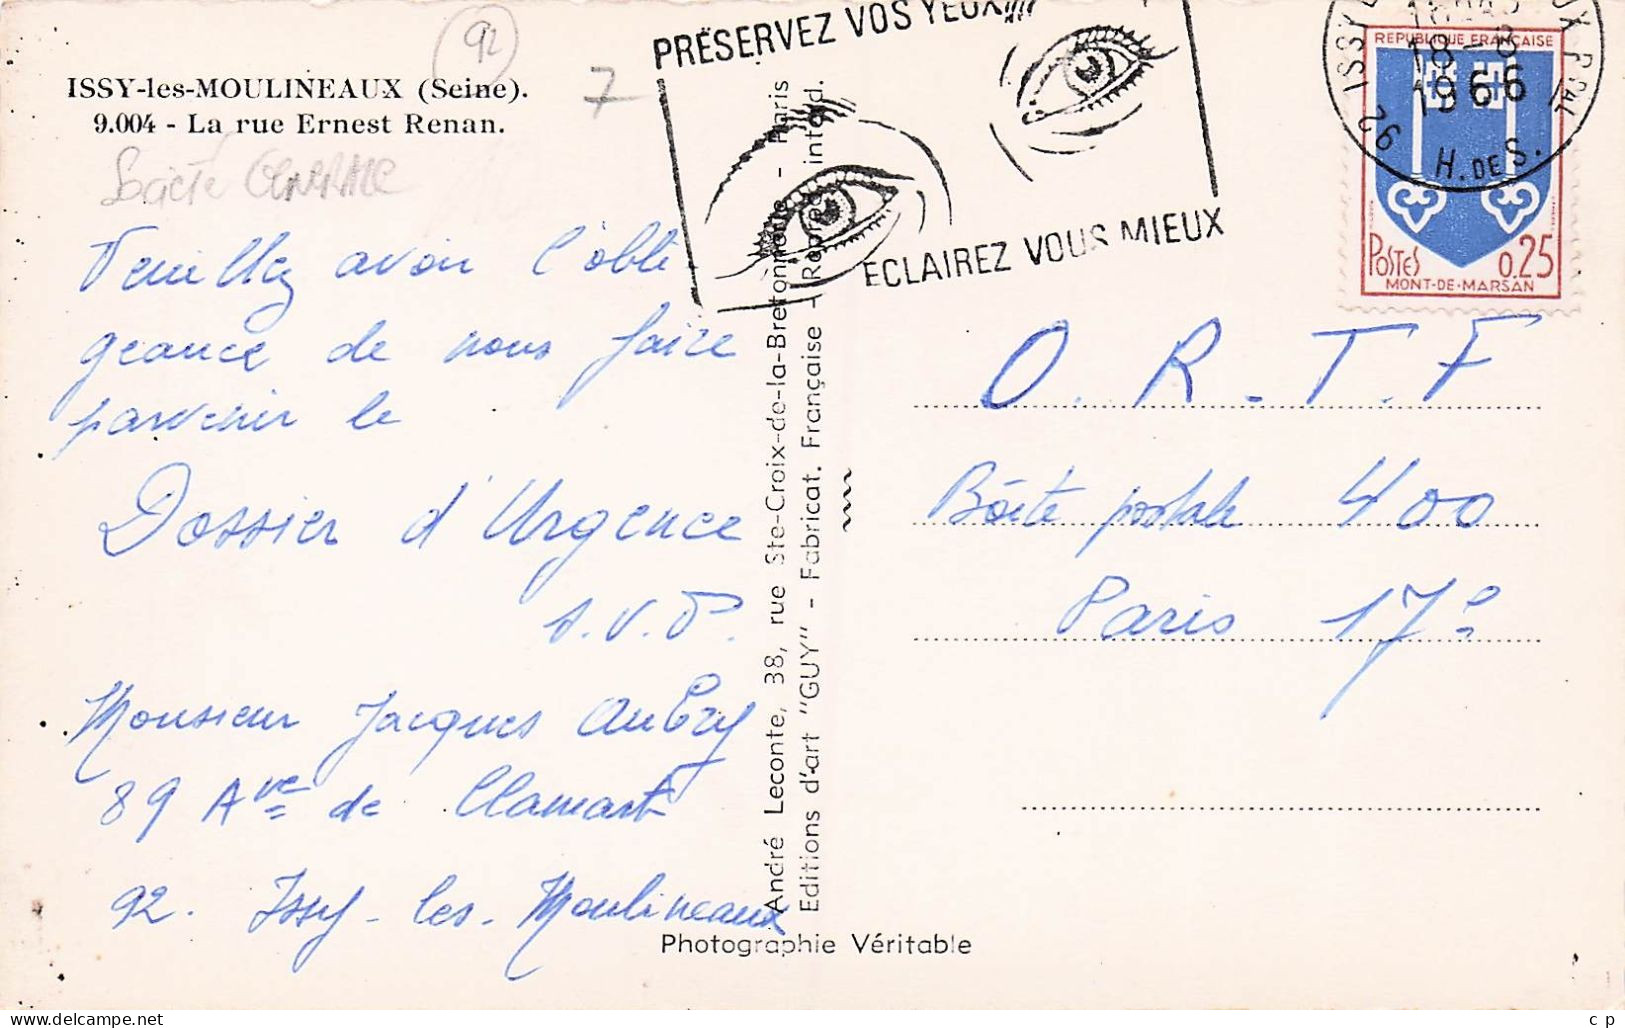 ISSY-les-MOULINEAUX (Seine).
9.004 - La rue Ernest Renan.
92
7
Société Générale
Veuillez avoir l'obli-
geance de nous faire
parvenir le
Dossier d'Urgence
s.v.P.
Monsieur Jacques Aubry
89 Ave de Clamart
92. Issy-les-Moulineaux
PRÉSERVEZ VOS YEUX
ECLAIREZ VOUS MIEUX
18-8
1966
92 ISSY
UX PPAL
H. DE S.
REPUBLIQUE FRANÇAISE
POSTES 0,25
MONT-DE-MARSAN
O.R.T.F
Boîte postale 400
Paris 17e
André Leconte, 38, rue Ste-Croix-de-la-Bretonnerie - Paris
Editions d'art "GUY" - Fabricat. Française - Reprod. interd.
Photographie Véritable
c p